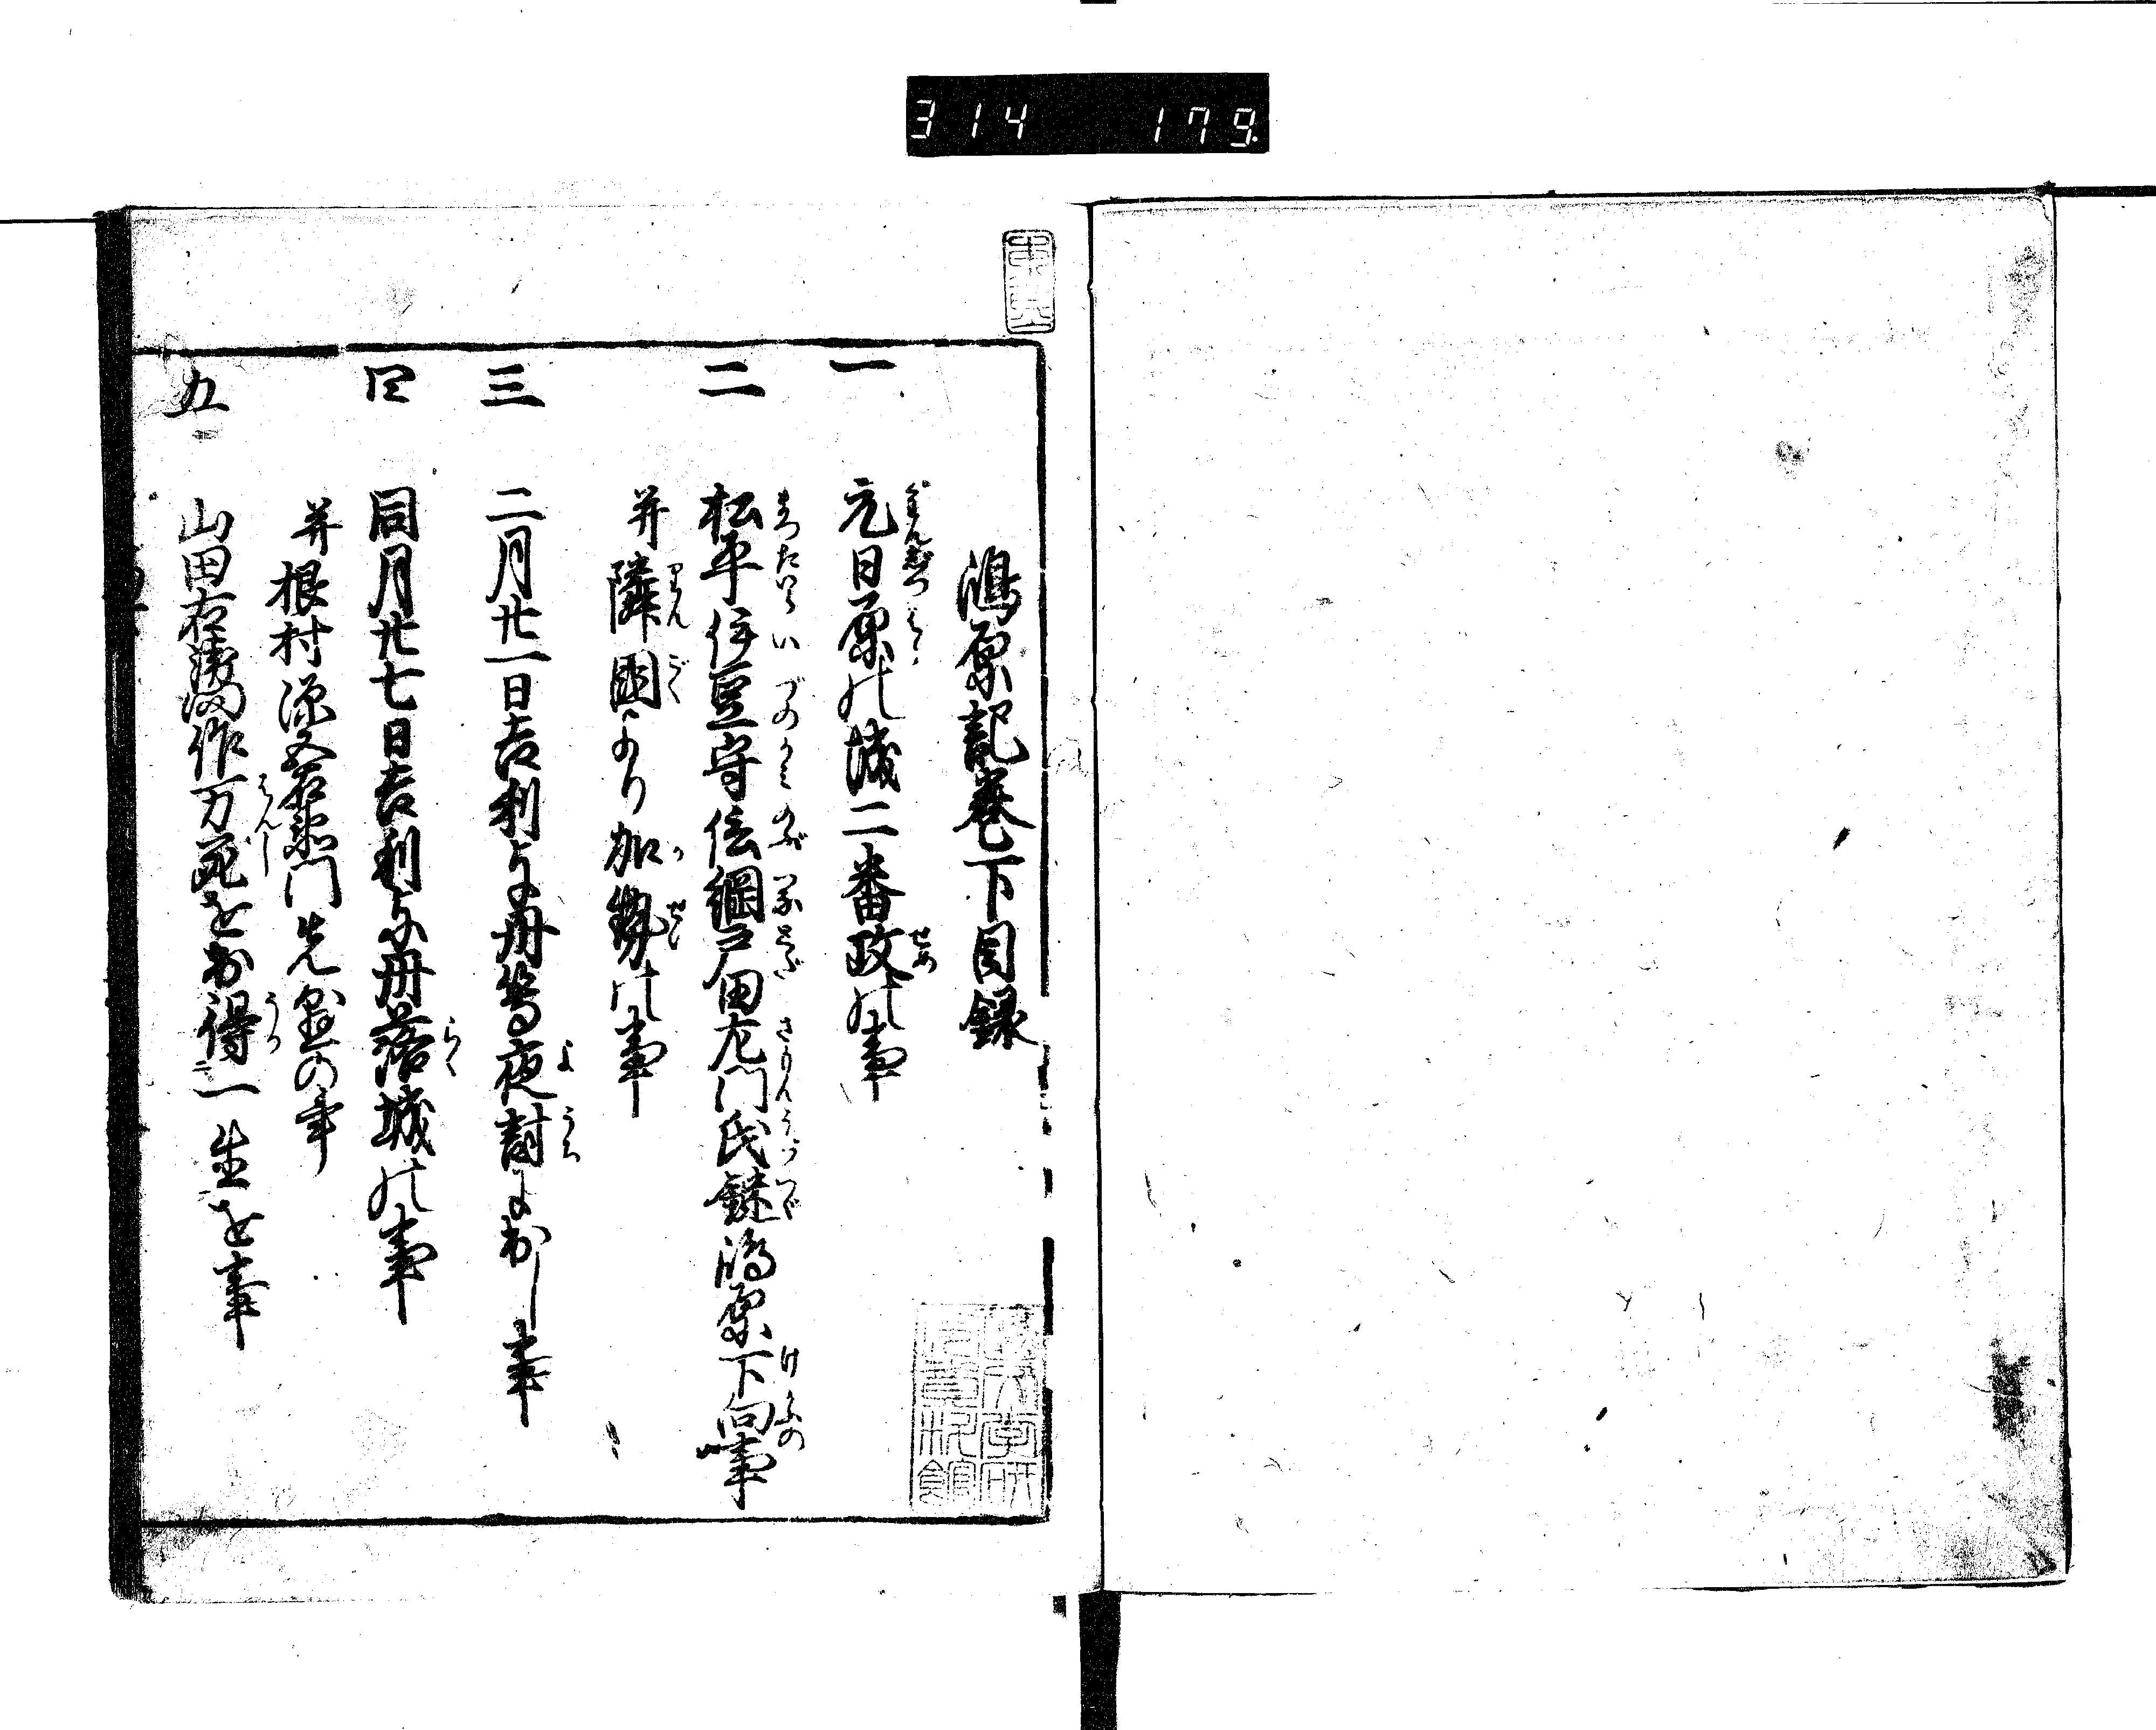 314 179
嶋原記巻下目録
一 元日原の城二番攻の事
二 松平伊豆守信綱戸田左門氏鉄嶋原下向事
并隣国より加勢の事
三 二月廿一日吉利支丹等夜討に出し事
四 同月廿七日吉利支丹落城の事
并根村源五右衛門先登の事
五 山田右衛門作万死を出得一生を事